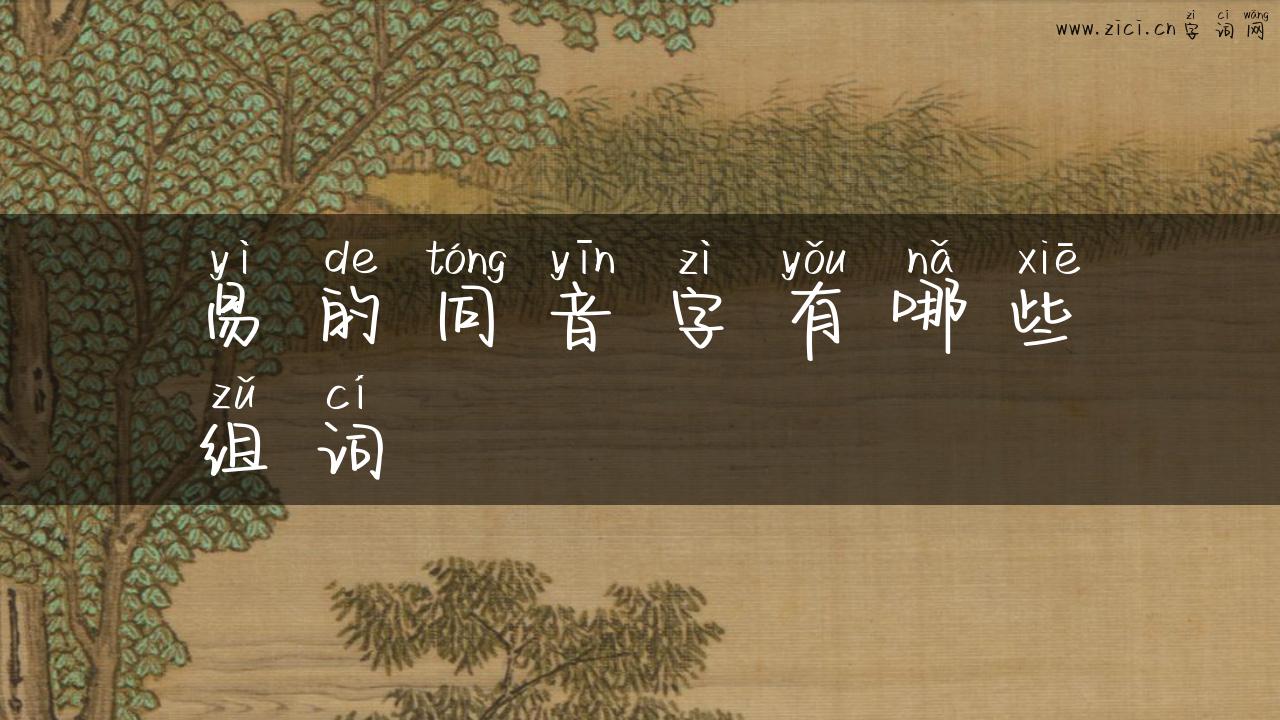 zì cí wǎng
www.zici.cn字词网
yì de tóng yīn zì yǒu nǎ xiē
易的同音字有哪些
zǔ cí
组词